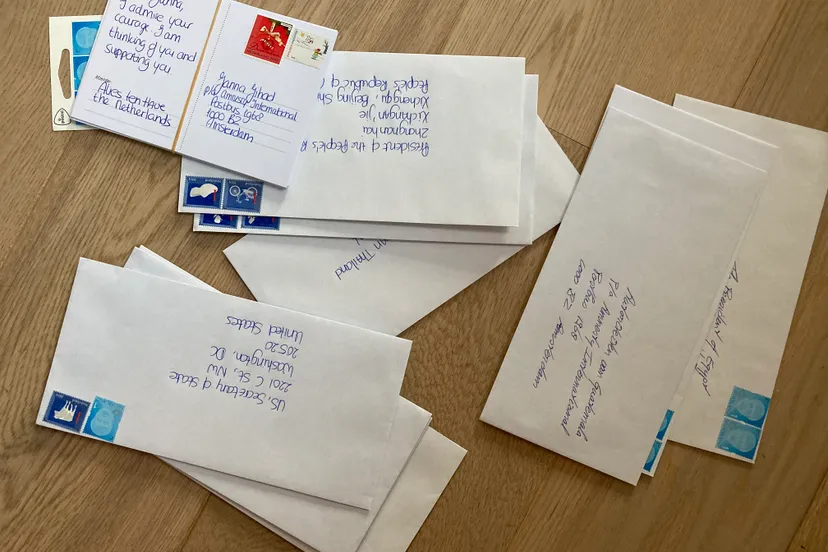 I admire your
courage. I am
thinking of you and
supporting you.
Alies ten Have
the Netherlands
Janna Jihad
p/a Amnesty International
Postbus 1968
1000 BZ
Amsterdam
President of the People's R
Zhongnanhai
Xichangan'jie
Xichengqu, Beijing Shi
People's Republic of
Thailand
US, Secretary of State
2201 C St., NW
Washington, DC
20520
United States
Autoriteiten van Guatemala
P/a Amnesty International
Postbus 1968
1000 BZ Amsterdam
President of Egypt